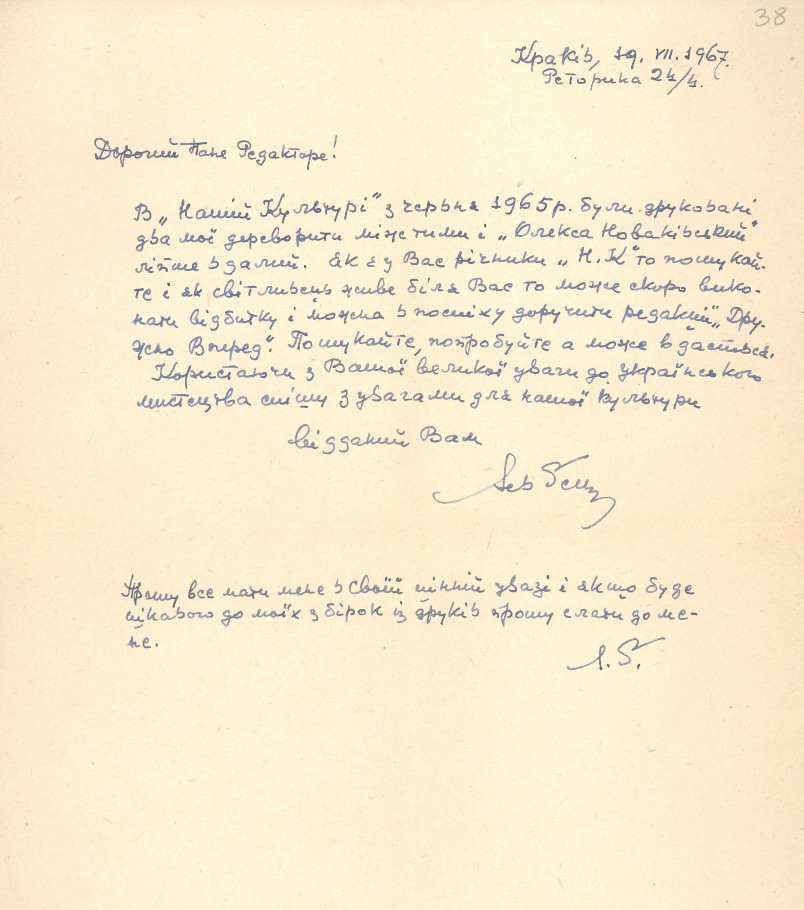 38
Краків, 19. VII. 1967.
Реторика 24/4.
Дорогий Пане Редакторе!
В „Нашій Культурі" з червня 1965 р. були друковані
два мої дереворити між тими і „Олекса Новаківський"
ліпше вдалий. Як є у Вас річники „Н. К" то пошукай-
те і як світливець живе біля Вас то може скоро вико-
нати відбитку і можна в поспіху доручити редакції „Дру-
жно Вперед". Пошукайте, попробуйте а може вдасться.
Користаючи з Вашої великої уваги до українського
мистецтва спішу з увагами для нашої культури
відданий Вам
Лев Ґец
Прошу все мати мене в своїй цінній увазі і якщо буде
цікавого до моїх збірок із друків прошу слати до ме-
не.
Л. Ґ.